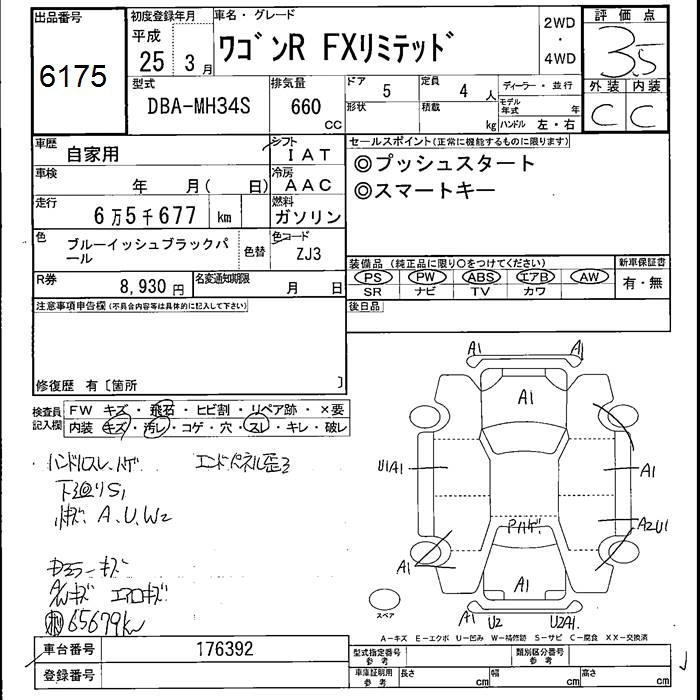 出品番号
6175
初度登録年月
平成
25 3月
車名・グレード
ワゴンR FXリミテッド
2WD
・
4WD
評価点
3.5
外装 内装
C C
型式
DBA-MH34S
排気量
660
CC
ドア 5
定員 4人
形状
積載 kg
ディーラー・並行
モデル年式 年
ハンドル 左・右
車歴 自家用
シフト IAT
車検 年 月( 日)
冷房 AAC
走行 6万5千677 km
燃料 ガソリン
色 ブルーイッシュブラックパール
色替
色コード ZJ3
R券 8,930円
名変通知期限 月 日
セールスポイント(正常に機能するものに限ります)
◎プッシュスタート
◎スマートキー
装備品 (純正品に限り○をつけてください)
新車保証書
PS PW ABS エアB AW
SR ナビ TV カワ
有・無
後日品
注意事項申告欄(不具合内容等は具体的に記入して下さい)
修復歴 有〔箇所 〕
検査員記入欄
FW キズ・飛石・ヒビ割・リペア跡・×要
内装 キズ・汚レ・コゲ・穴・スレ・キレ・破レ
ハンドルスレ、ハゲ エンドパネル歪3
下廻りS1
小キズ A、U、W2
ミラーキズ
AWキズ エアロキズ
65679km
A1 A1
A1
U1A1
A1
A2U1
Pハゲ
A1
A1
A1 U2 U2A1
スペア
A-キズ E-エクボ U-凹み W-補修跡 S-サビ C-腐食 XX-交換済
車台番号 176392
登録番号
型式指定番号 参考
類別区分番号 参考
車庫証明用 参考
長さ cm 幅 cm 高さ cm